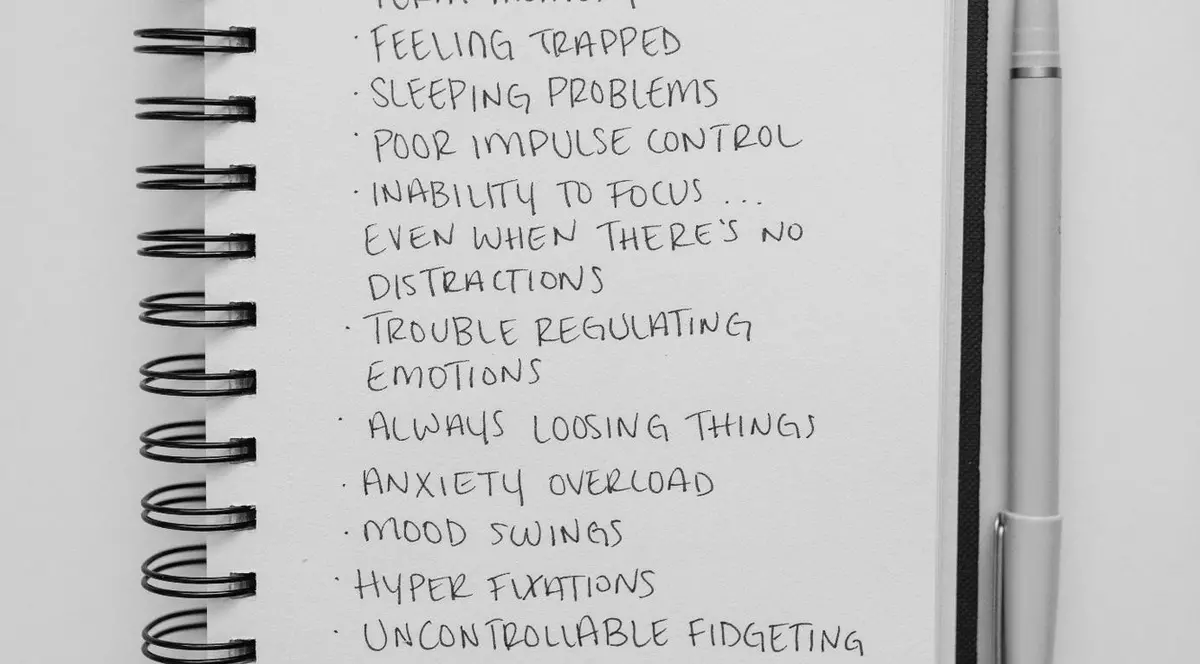 · FEELING TRAPPED
· SLEEPING PROBLEMS
· POOR IMPULSE CONTROL
· INABILITY TO FOCUS ...
EVEN WHEN THERE'S NO
DISTRACTIONS
· TROUBLE REGULATING
EMOTIONS
· ALWAYS LOOSING THINGS
· ANXIETY OVERLOAD
· MOOD SWINGS
· HYPER FIXATIONS
· UNCONTROLLABLE FIDGETING